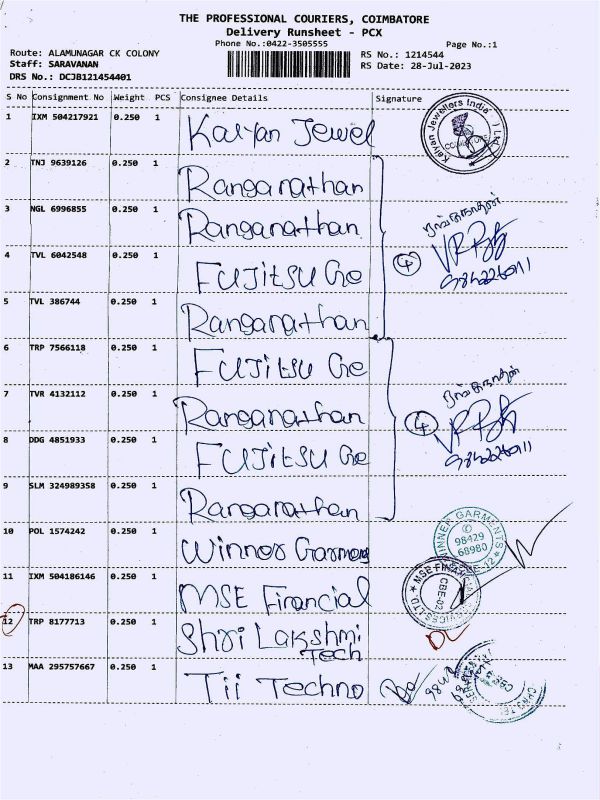 THE PROFESSIONAL COURIERS, COIMBATORE
Delivery Runsheet - PCX
Phone No.:0422-3505555
Page No.:1
Route: ALAMUNAGAR CK COLONY
RS No.: 1214544
Staff: SARAVANAN
RS Date: 28-Jul-2023
DRS No.: DCJB121454401
S No Consignment No Weight PCS Consignee Details Signature
1 IXM 504217921 0.250 1 Kalyan Jewel
Kalyan Jewellers India Ltd
2 TNJ 9639126 0.250 1 Ranganathan
3 NGL 6996855 0.250 1 Ranganathan
ரங்கநாதன்
4 TVL 6042548 0.250 1 FUJitSU Ge
4
5 TVL 386744 0.250 1 Ranganathan
6 TRP 7566118 0.250 1 FUJitSU Ge
ரங்கநாதன்
7 TVR 4132112 0.250 1 Ranganathan
4
8 DDG 4851933 0.250 1 FUJitSU Ge
9 SLM 324989358 0.250 1 Ranganathan
10 POL 1574242 0.250 1 Winner Garments
WINNER GARMENTS
98429
68980
11 IXM 504186146 0.250 1 MSE Financial
MSE FINANCIAL SERVICES LTD.
CBE-02
12 TRP 8177713 0.250 1 Shri Lakshmi
Tech
DL
13 MAA 295757667 0.250 1 Tii Techno